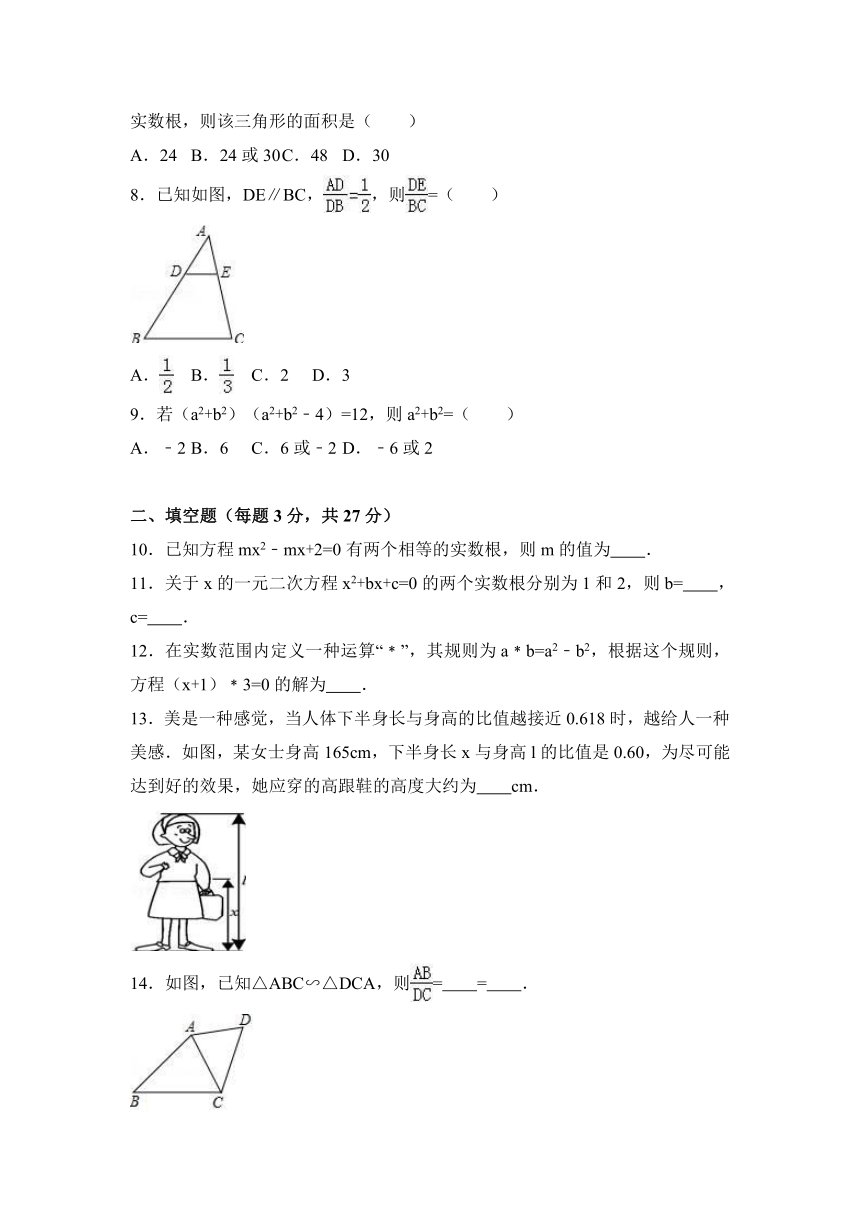 实数根，则该三角形的面积是（　　）
A．24 B．24或30 C．48 D．30
8．已知如图，DE∥BC，AD/DB=1/2，则DE/BC=（　　）
A
D E
B C
A．1/2 B．1/3 C．2 D．3
9．若（a²+b²）（a²+b²﹣4）=12，则a²+b²=（　　）
A．﹣2 B．6 C．6或﹣2 D．﹣6或2
二、填空题（每题3分，共27分）
10．已知方程mx²﹣mx+2=0有两个相等的实数根，则m的值为____．
11．关于x的一元二次方程x²+bx+c=0的两个实数根分别为1和2，则b=____，
c=____．
12．在实数范围内定义一种运算“﹡”，其规则为a﹡b=a²﹣b²，根据这个规则，
方程（x+1）﹡3=0的解为____．
13．美是一种感觉，当人体下半身长与身高的比值越接近0.618时，越给人一种
美感．如图，某女士身高165cm，下半身长x与身高l的比值是0.60，为尽可能
达到好的效果，她应穿的高跟鞋的高度大约为____cm．
l
x
14．如图，已知△ABC∽△DCA，则AB/DC=____=____．
A D
B C